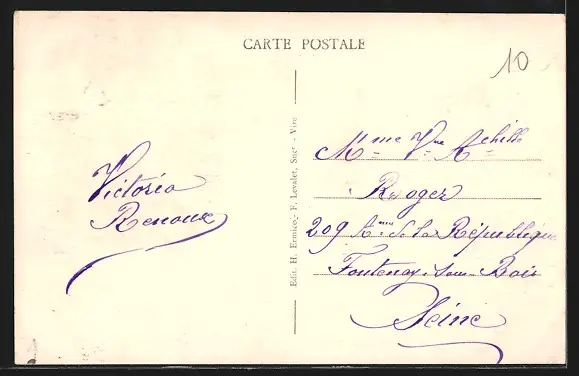 CARTE POSTALE
10
Victoria
Renoux
Edit. H. Ermice, F. Levalet, Sucr - Vire
Mme Vve Achille
Roger
209 Aue de la République
Fontenay-sous-Bois
Seine